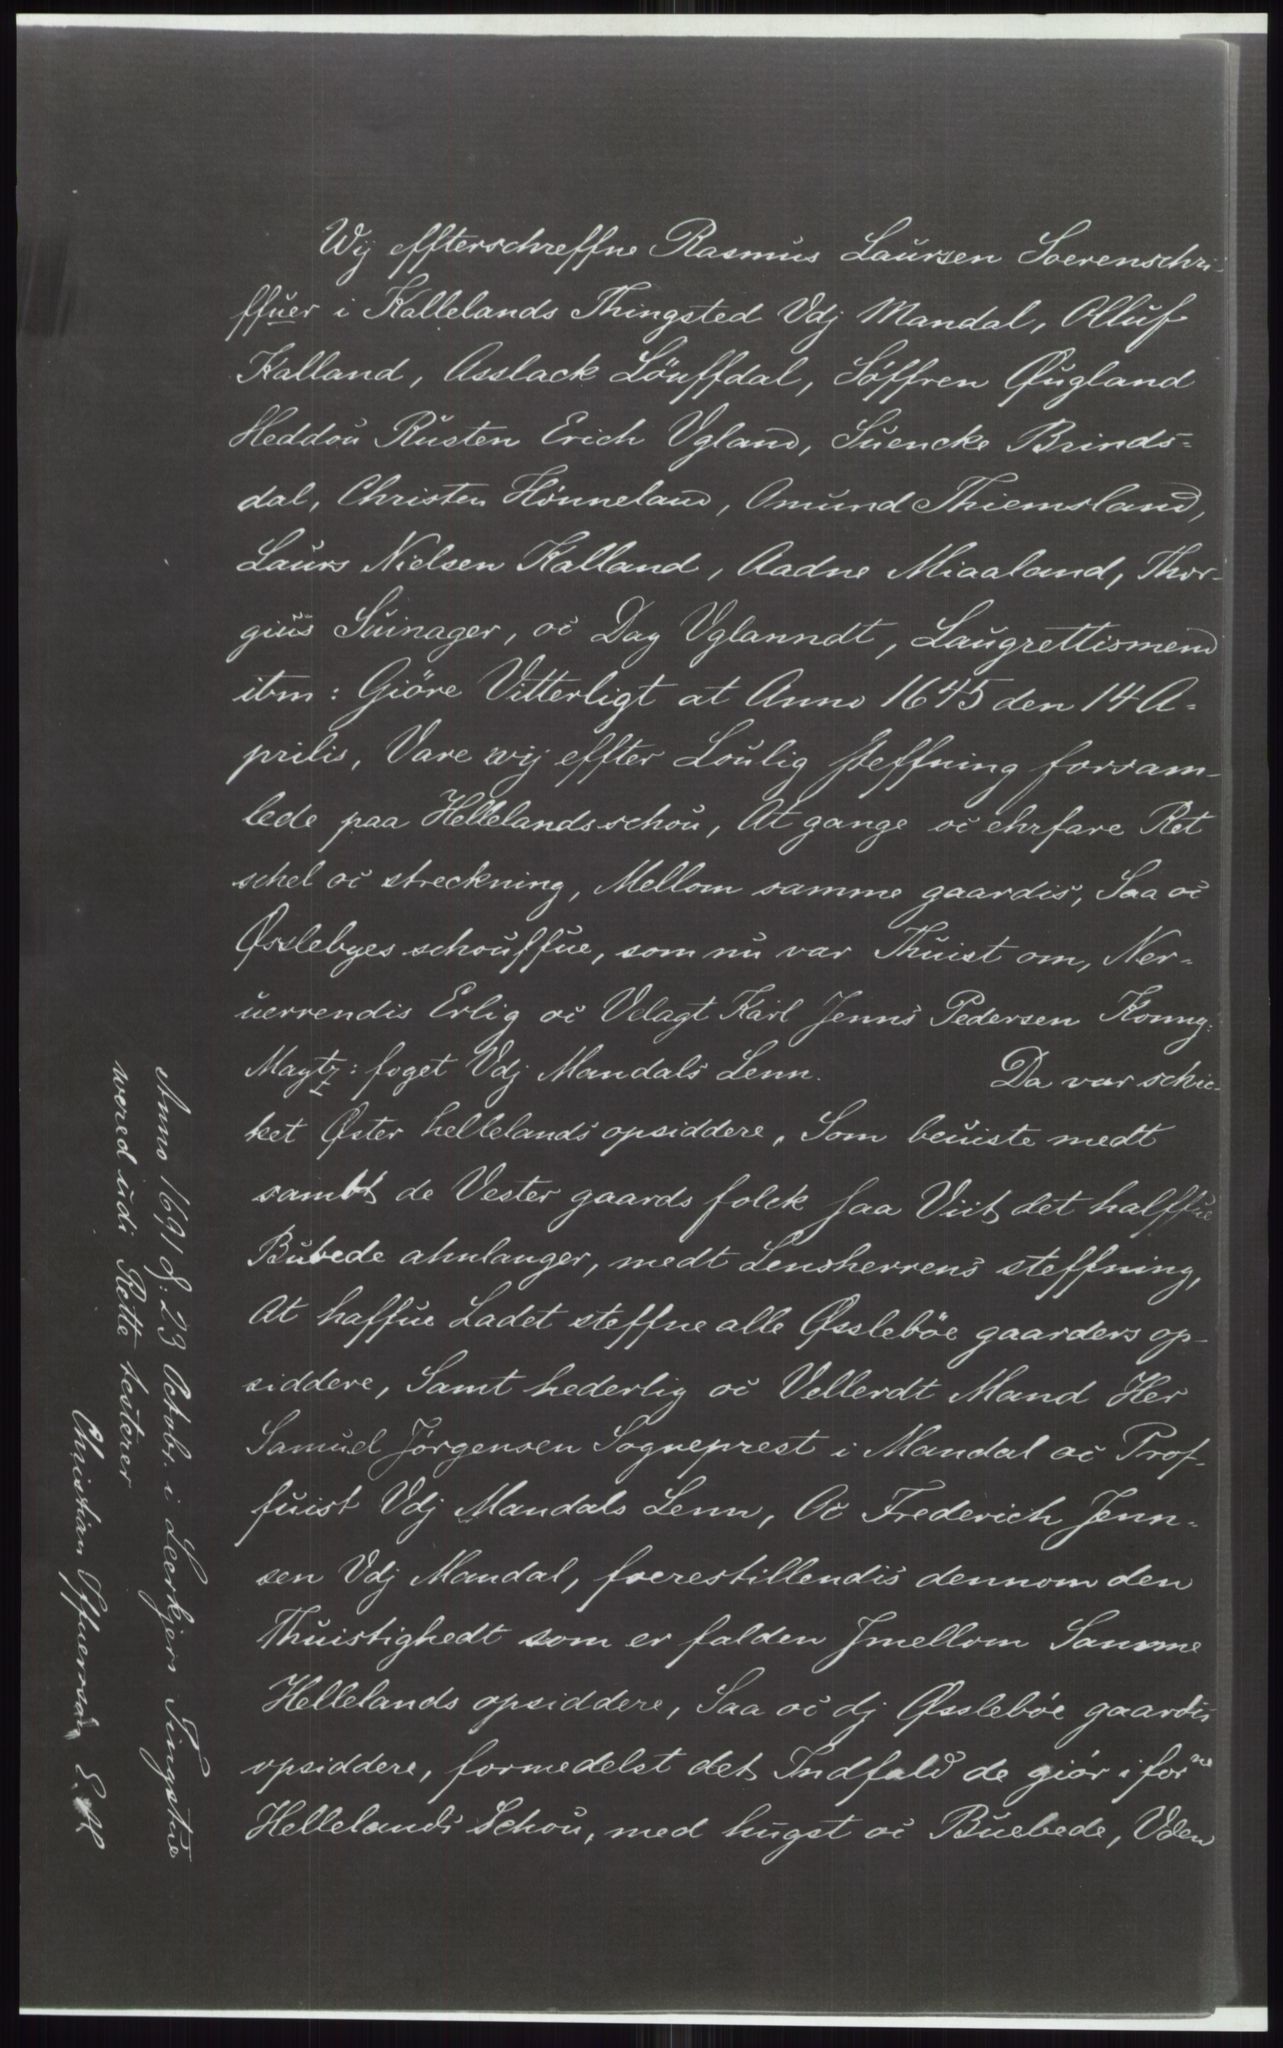 Wij effterschreffne Rasmus Laursen Soerenschri-
ffuer i Kallelands Thingsted Vdj Mandal, Olluf
Kalland, Asslack Löuffdal, Söffren Øugland
Heddou Rusten Erich Vgland, Suencke Brinds-
dal, Christen Hönneland, Omund Thiemsland,
Laurs Nielsen Kalland, Aadne Miaaland, Thor-
giuls Suinager, oc Dag Vglanndt, Laugrettismend
itm: Giöre Vitterligt at Anno 1645 den 14 A-
prilis, Vare wij effter Loulig steffning forsam-
lede paa Hellelandsschou, At gange oc ehrfare Ret
schel oc streckning, Mellom samme gaardis, Saa oc
Øsslebyes schouffue, som nu var Thuist om, Ner-
uerrendis Erlig oc Velagt Karl Jenns Pedersen Konng:
Maytz: foget Vdj Mandals Lenn. Da var schic-
ket Øster hellelands opsiddere, Som beuiste medt
sambt de Vester gaards folck saa Viit det halffue
Bubede ahnlanger, medt Lensherrens steffning,
At haffue Ladet steffne alle Øssleböe gaarders op-
siddere, Samt hederlig oc Vellerdt Mand Her
Samuel Jørgensen Sogneprest i Mandal oc Prof-
fuist Vdj Mandals Lenn, Oc Frederich Jenn-
sen Vdj Mandal, foerestillendis dennom den
Thuistighedt som er falden Jmellom Samme
Hellelands opsiddere, Saa oc dj Øsslebóe gaardis
opsiddere, formedelst det Indfald de giör i forne
Hellelands Schou, med hugst oc Buebede, Vden
Anno 1691 d: 23 Octobr. i Leerkjers Tingstue
wered udi Rette testerer
Christian